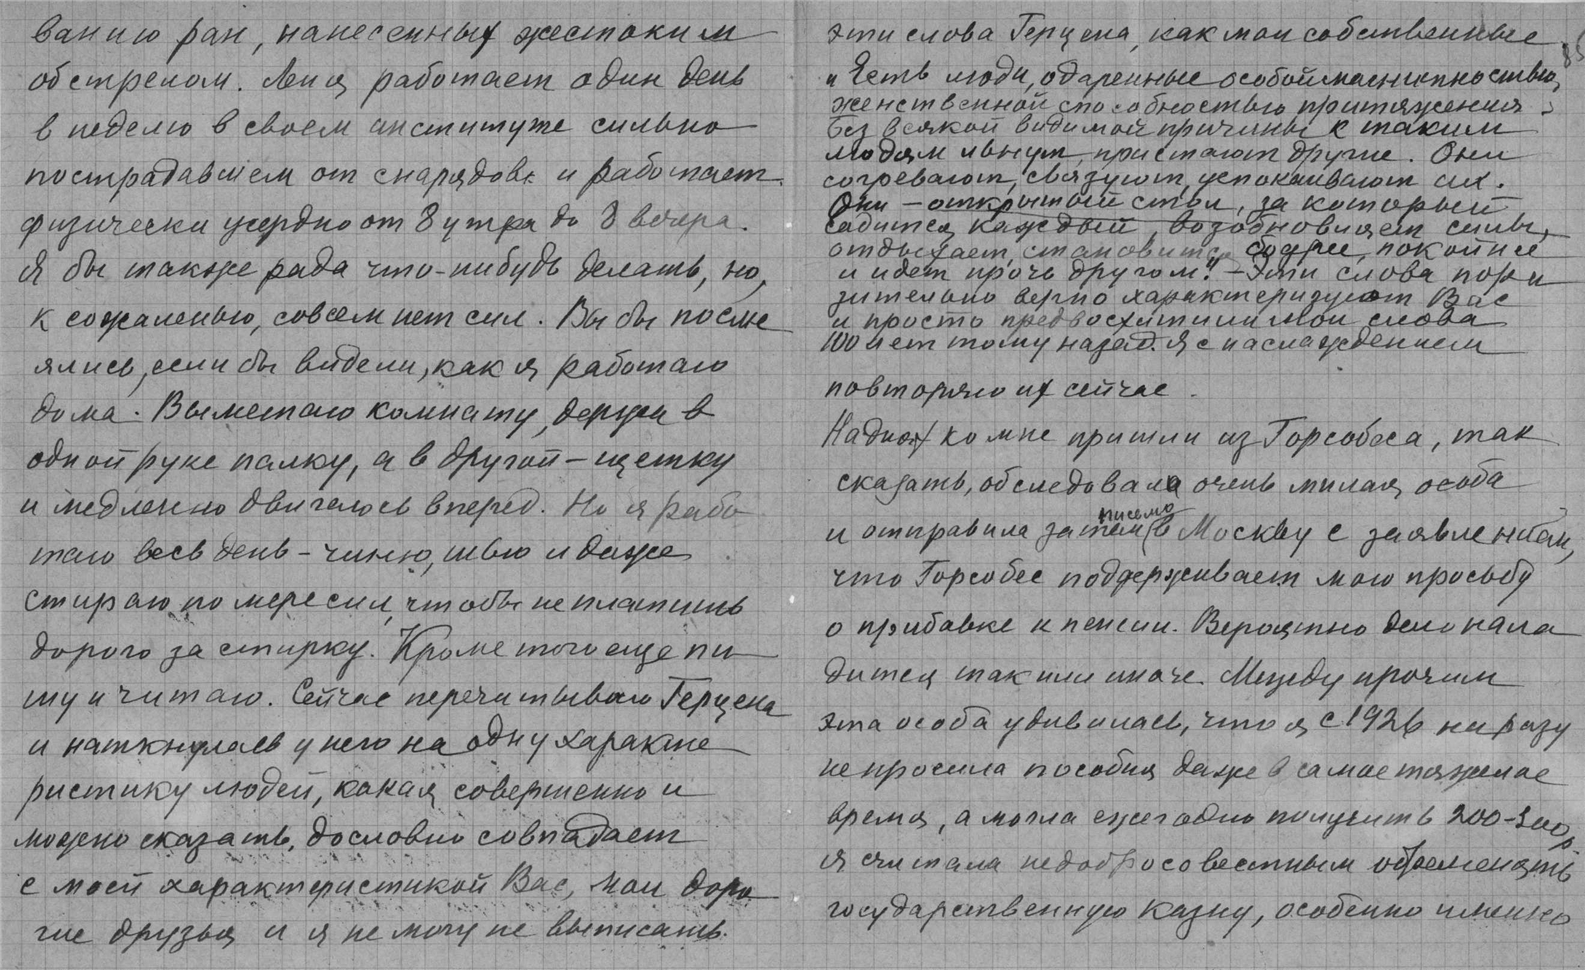 ванию ран, нанесенных жестоким
обстрелом. Леля работает один день
в неделю в своем институте сильно
пострадавшем от снарядов и работает
физически усердно от 8 утра до 8 вечера.
Я бы также рада что-нибудь делать, но,
к сожаленью, совсем нет сил. Вы бы посме
ялись, если бы видели, как я работаю
дома. Выметаю комнату, держа в
одной руке палку, а в другой – щетку
и медленно двигаюсь вперед. Но я рабо
таю весь день – чиню, шью и даже
стираю по мере сил, чтобы не платить
дорого за стирку. Кроме того еще пи
шу и читаю. Сейчас перечитываю Герцена
и наткнулась у него на одну характе
ристику людей, какая совершенно и
можно сказать, дословно совпадает
с моей характеристикой Вас, мои доро
гие друзья и я не могу не выписать
эти слова Герцена, как мои собственные
„Есть люди, одаренные особой магнитностью,
женственной способностью притяжения
Без всякой видимой причины к таким
людям льнут, пристают другие. Они
согревают, связуют, успокаивают их.
Они – открытый стол, за который
садится каждый, возобновляет силы,
отдыхает, становится бодрее, покойнее
и идет прочь другом." – Эти слова пора
зительно верно характеризуют Вас
и просто предвосхитили мои слова
100 лет тому назад. Я с наслаждением
повторяю их сейчас.
На днях ко мне пришли из Горсобеса, так
сказать, обследовала очень милая особа
и отправила затем письмо в Москву с заявлением,
что Горсобес поддерживает мою просьбу
о прибавке к пенсии. Вероятно дело нала
дится так или иначе. Между прочим
эта особа удивилась, что я с 1926 ни разу
не просила пособия даже в самое тяжелое
время, а могла ежегодно получить 200-300 р.
Я считала недобросовестным обременять
государственную казну, особенно именно
85